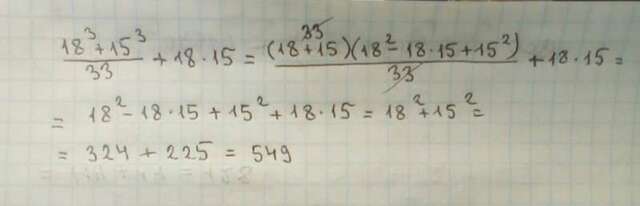 (18³+15³)/33 + 18·15 = ((18+15)(18²-18·15+15²))/33 + 18·15 =
= 18²-18·15+15²+18·15 = 18²+15² =
= 324+225 = 549